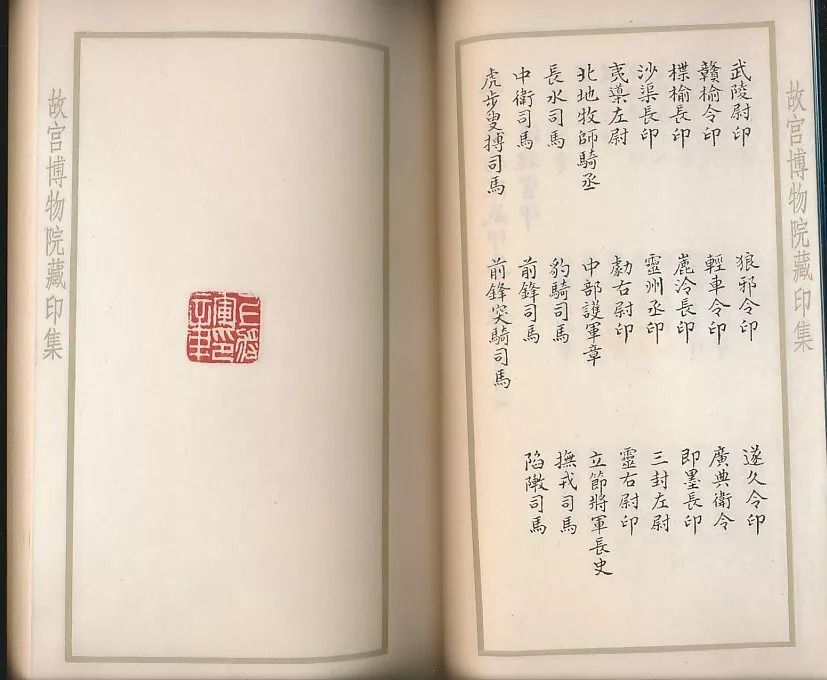 故宮博物院藏印集
武陵尉印 狼邪令印 遂久令印
贛榆令印 輕車令印 廣典衛令
楪榆長印 麊泠長印 即墨長印
沙渠長印 靈州丞印 三封左尉
夷導左尉 勮右尉印 靈右尉印
北地牧師騎丞 中部護軍章 立節將軍長史
長水司馬 豹騎司馬 撫戎司馬
中衛司馬 前鋒司馬 陷敶司馬
虎步叟搏司馬 前鋒突騎司馬
故宮博物院藏印集